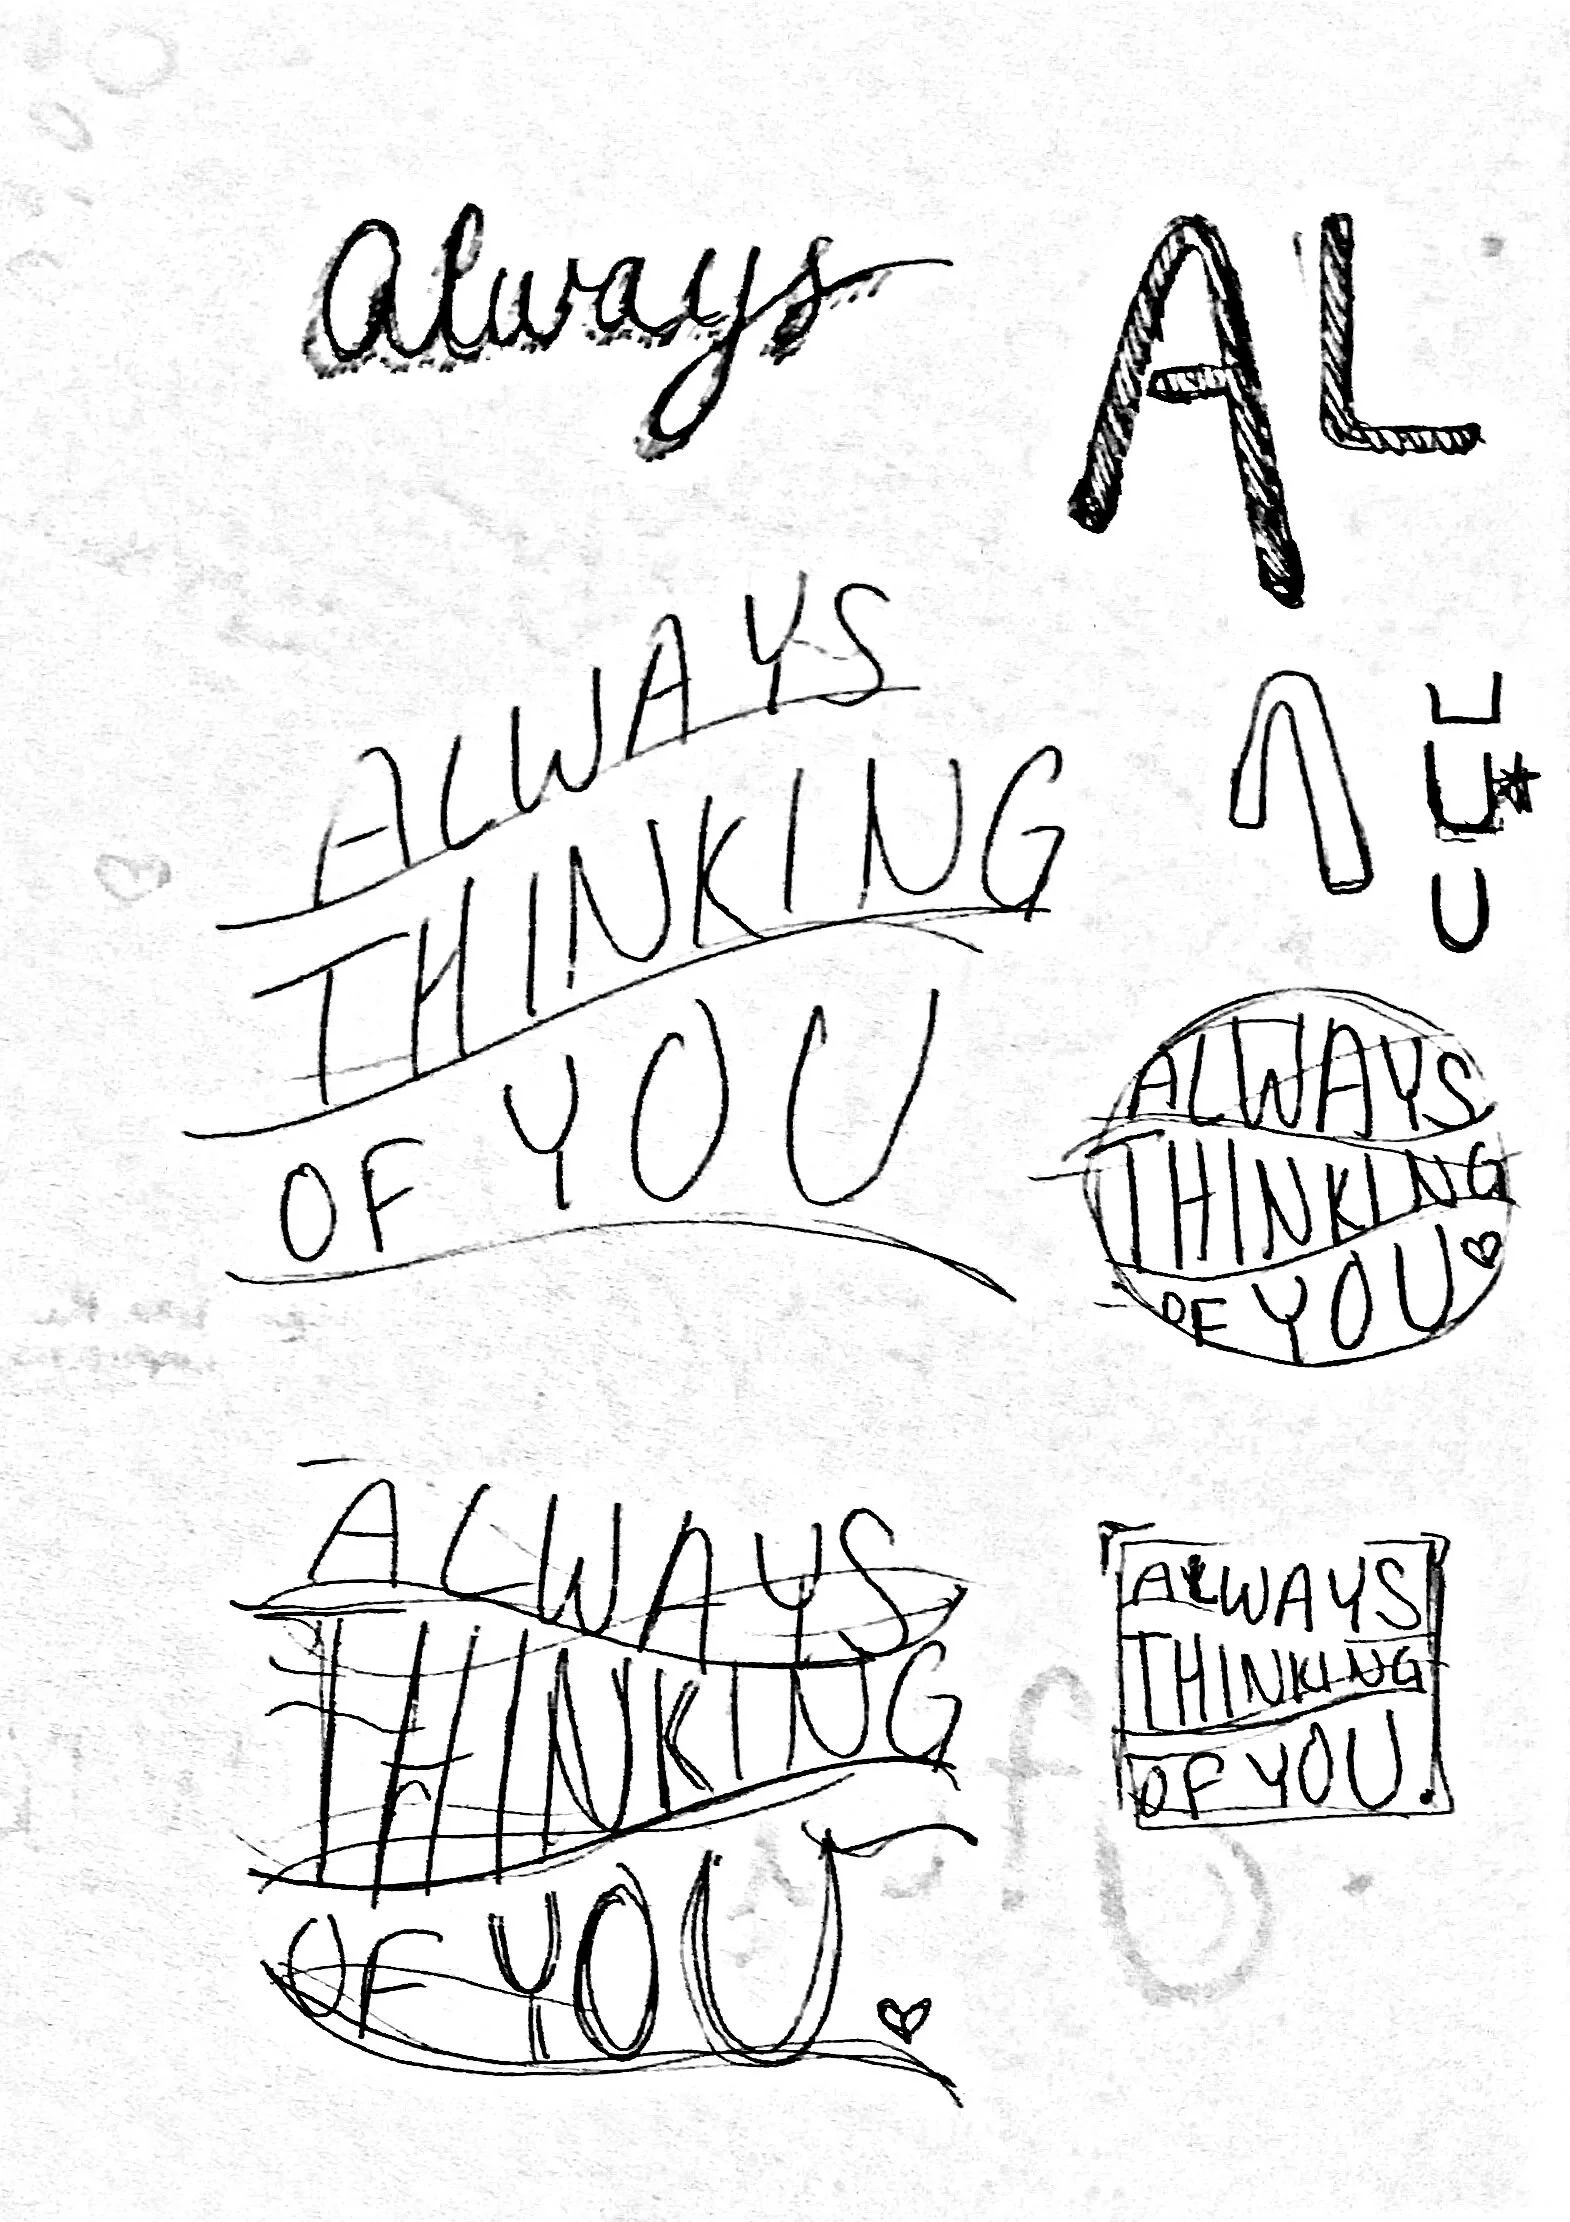 always
AL
ALWAYS
THINKING
OF YOU
U
U
U
ALWAYS
THINKING
OF YOU
ALWAYS
THINKING
OF YOU
ALWAYS
THINKING
OF YOU.